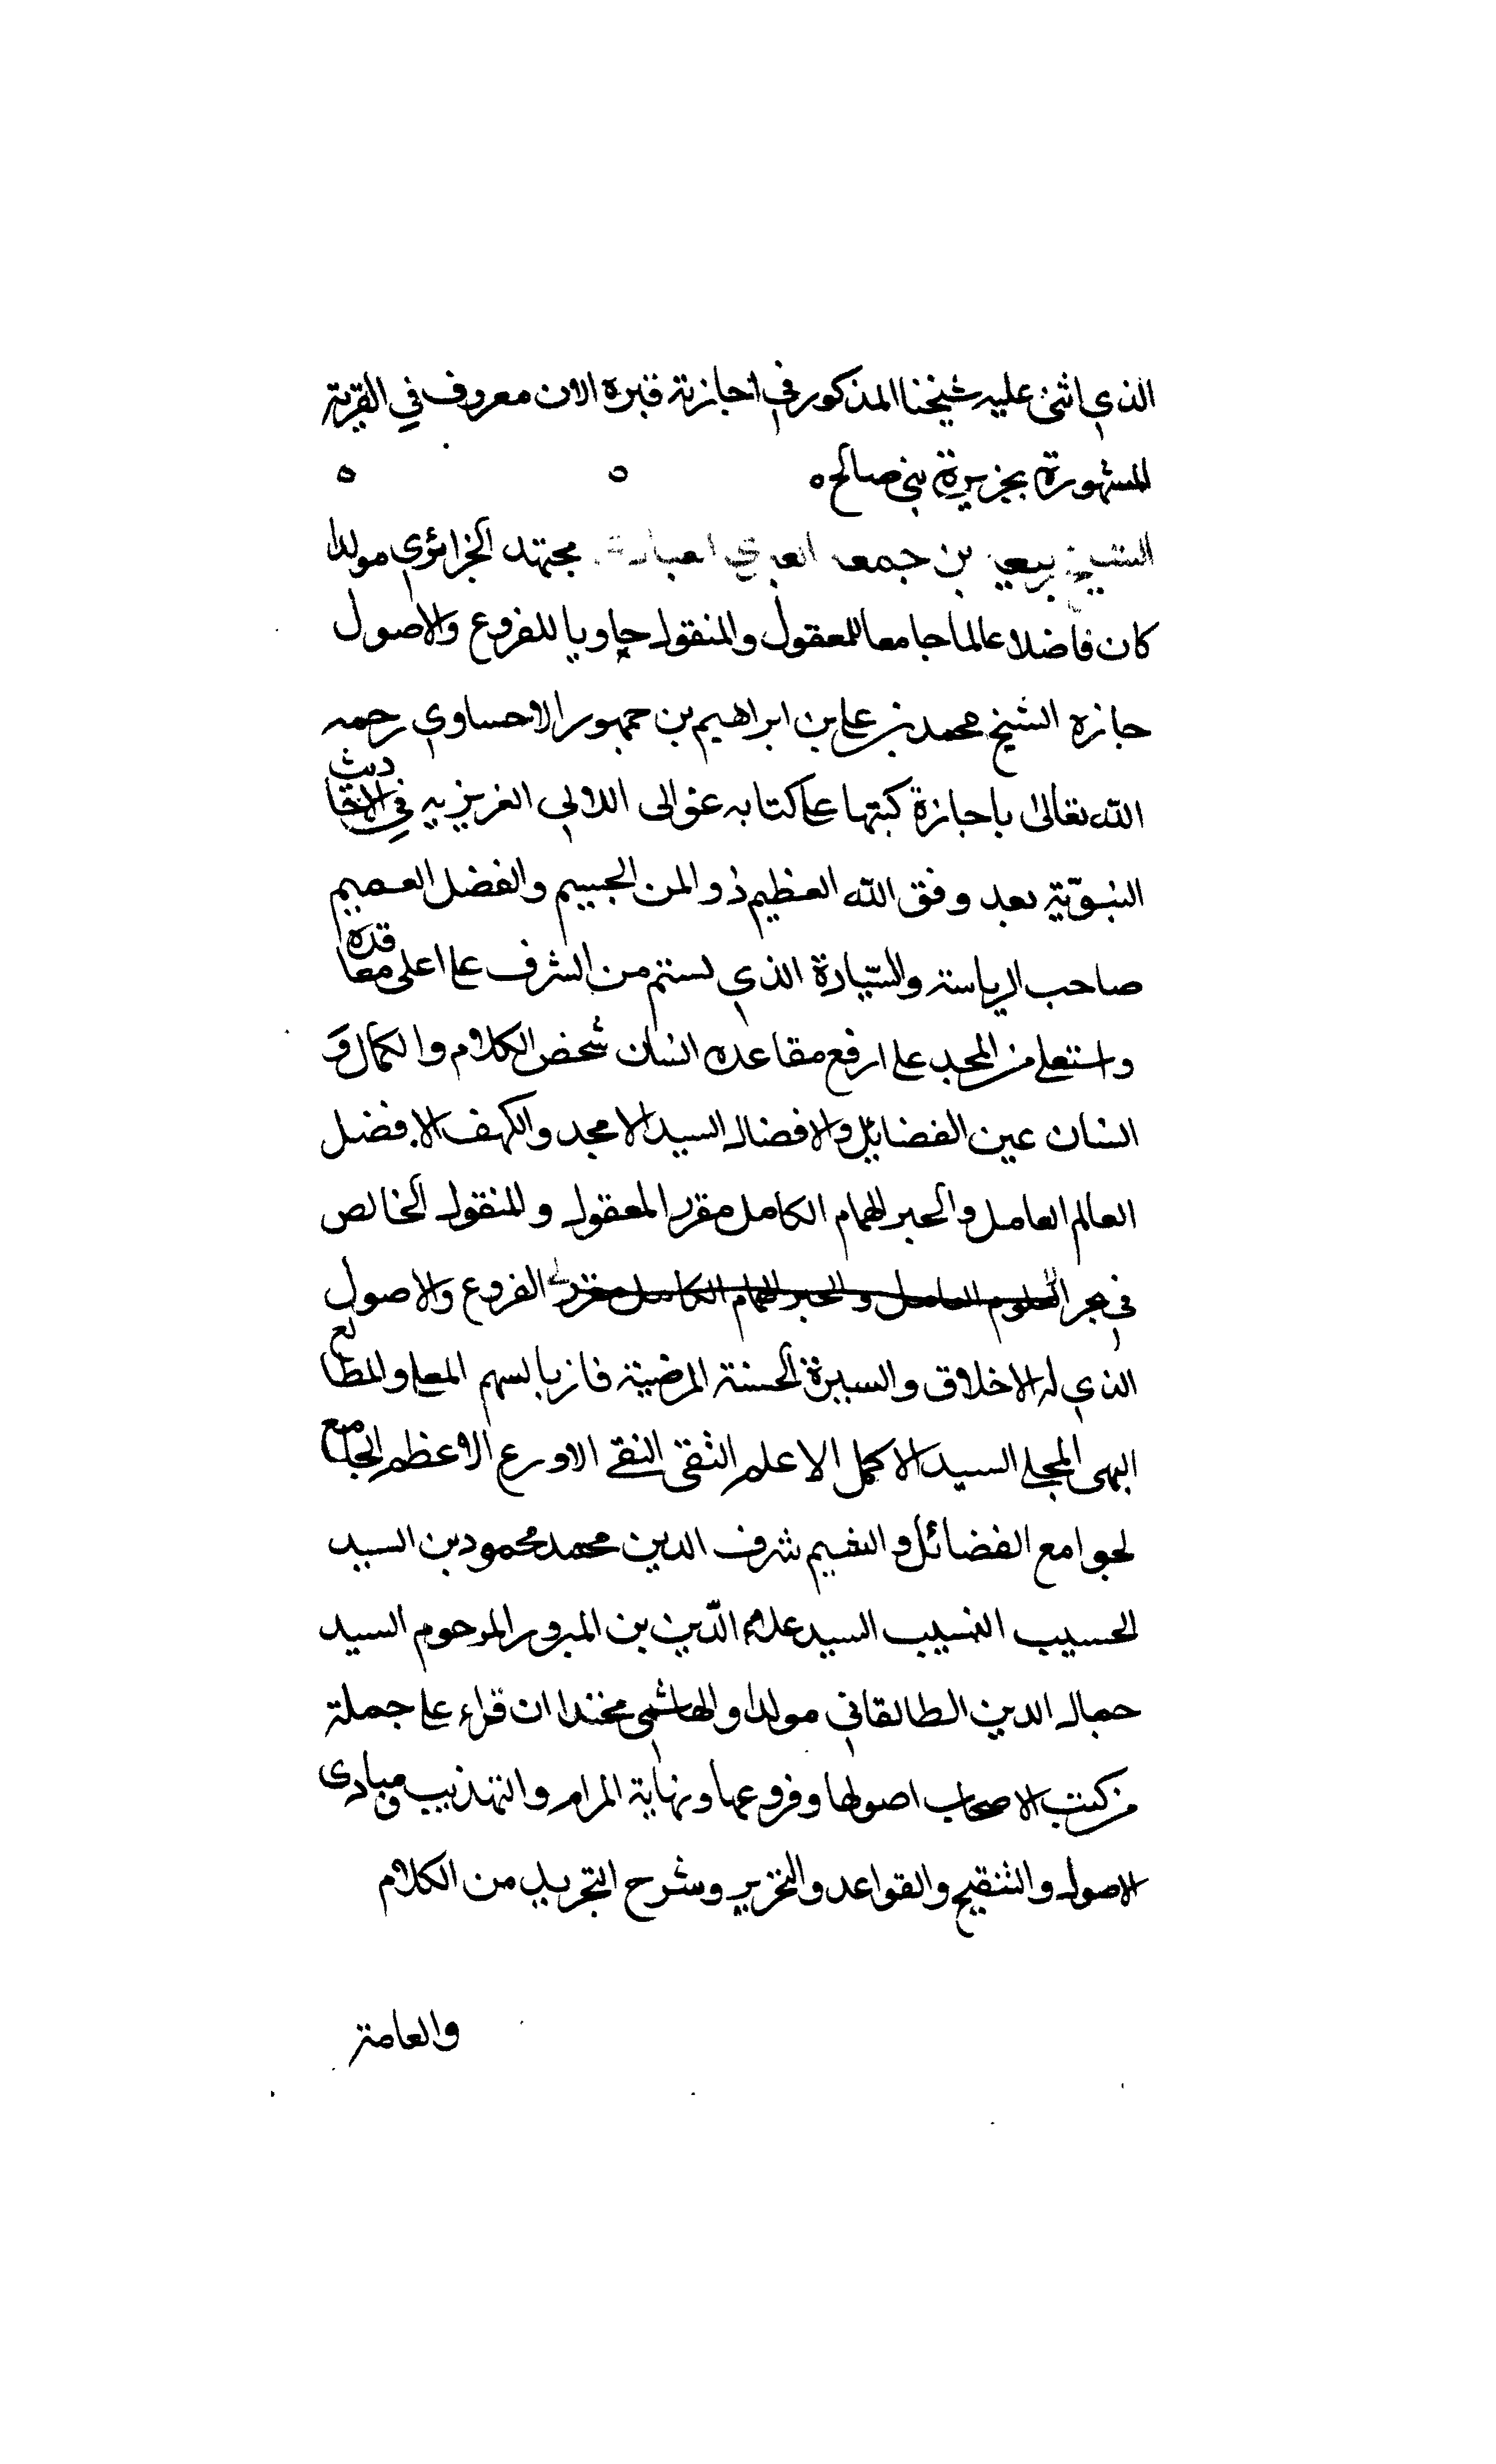 الذي اثنى عليه شيخنا المذكور في اجازته قبره الان معروف في القرية
المشهورة بجزيرة بني صالح ٥ ٥ ٥
الشيخ ربيع بن جمعه العبادي مجتهد الجزائري مولدا
كان فاضلا عالما جامعا للمعقول والمنقول حاويا للفروع والاصول
جازه الشيخ محمد بن علي بن ابراهيم بن جمهور الاحساوي رحمه
الله تعالى باجازة كتبها على كتابه عوالى اللالي العزيزيه في الاحاديث
النبويّة بعد وفق الله العظيم ذو المن الجسيم والفضل العميم
صاحب الرياسة والسّيادة الذي تسنم من الشرف على اعلى معاقده
واستعلى من المجد على ارفع مقاعده انسان شخص الكلام والكمال وَ
انسان عين الفضايل والافضال السيد الامجد والكهف الافضل
العالم العامل والحبر الهمام الكامل مقرر المعقول والمنقول الخالص
في بحر العلوم العامل والحبر الهمام الكامل مقرر الفروع والاصول
الذي له الاخلاق والسيرة الحسنة المرضية فاز بالسهم المعلى والمطالع
البهى المجلى السيد الاكمل الاعلم التقى النقى الاورع الاعظم الجامع
لجوامع الفضائل والشيم شرف الدين محمد محمود بن السيد
الحسيب النسيب السيد علاء الدّين بن المبرور المرحوم السيد
جمال الدين الطالقاني مولدا والهاشمى محتدا ان قراء على جملة
من كتب الاصحاب اصولها وفروعها ونهاية المرام والتهذيب ومبادى
الاصول والتنقيح والقواعد والتحرير وشرح التجريد من الكلام
والعامة